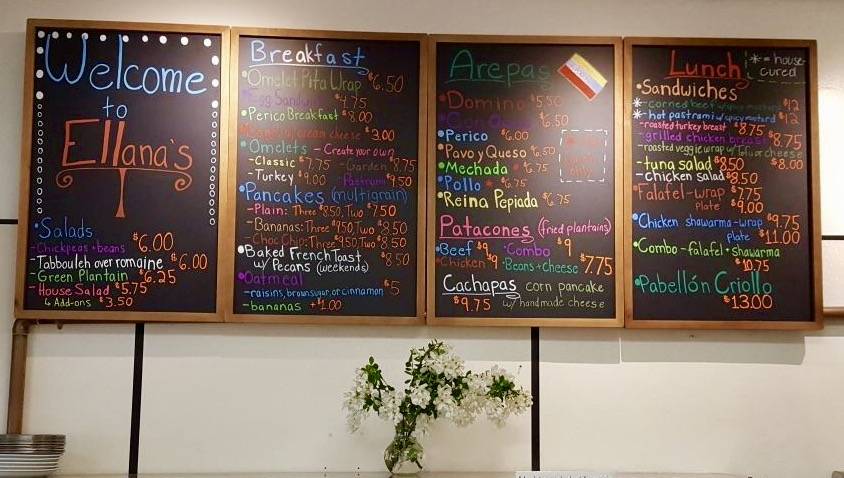 Welcome
to
Ellana's
Salads
- Chickpeas + beans $6.00
- Tabbouleh over romaine $6.00
- Green Plantain $6.25
- House Salad $5.75
4 Add-ons $3.50
Breakfast
Omelet Pita Wrap $6.50
Egg Sandwich $4.75
Perico Breakfast $8.00
cream cheese $3.00
Omelets - Create your own
- Classic $7.75 - Garden $8.75
- Turkey $9.00 - Pastrami $9.50
Pancakes (multigrain)
- Plain: Three $8.50, Two $7.50
- Bananas: Three $9.50, Two $8.50
Choc Chip: Three $9.50, Two $8.50
Baked French Toast
w/ Pecans (weekends) $8.50
Oatmeal
- raisins, brown sugar, or cinnamon $5
- bananas + $1.00
Arepas
Domino $5.50
$6.50
Perico $6.00
Pavo y Queso $6.50
Mechada * $6.75
Pollo * $6.75
Reina Pepiada $6.75
Patacones (fried plantains)
Beef $9 Combo $9
Chicken $9 Beans + Cheese $7.75
Cachapas corn pancake
$9.75 w/ handmade cheese
Lunch
* = house
cured
Sandwiches
* - corned beef w/ spicy mustard $12
* - hot pastrami w/ spicy mustard $12
- roasted turkey breast $8.75
- grilled chicken breast $8.75
roasted veggie wrap w/ tofu or cheese
$8.00
- tuna salad $8.50
- chicken salad $8.50
Falafel - wrap $7.75
plate $9.00
Chicken shawarma - wrap $9.75
plate $11.00
Combo - falafel + shawarma
$10.75
Pabellón Criollo
$13.00